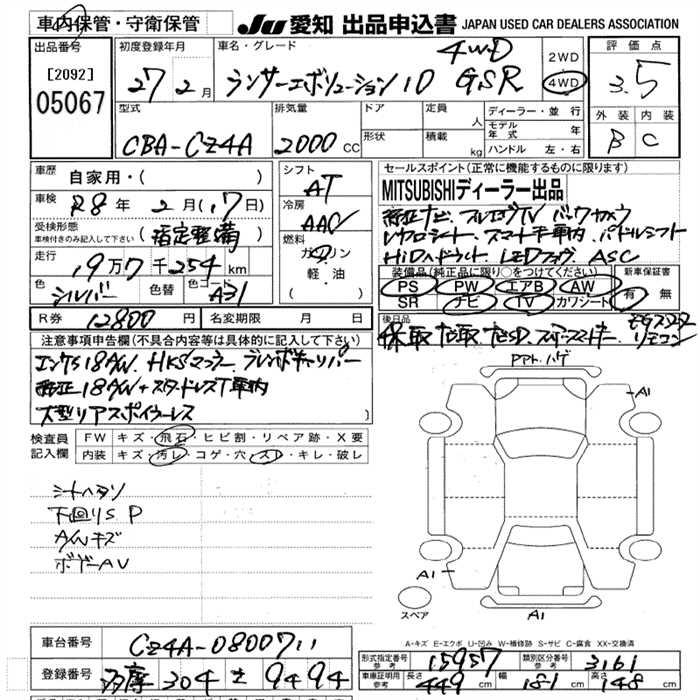 車内保管・守衛保管 JU 愛知 出品申込書 JAPAN USED CAR DEALERS ASSOCIATION
出品番号 初度登録年月 車名・グレード 4WD 2WD 評価点
[2092] 27 2月 ランサーエボリューション10 GSR 4WD 3.5
05067 型式 排気量 ドア 定員 人 ディーラー・並行 外装 内装
CBA-CZ4A 2000cc 形状 積載 kg モデル年式 年 B C
ハンドル 左・右
車歴 自家用・( ) シフト AT セールスポイント(正常に機能するものに限ります)
車検 R8年 2月(17日) 冷房 AAC MITSUBISHIディーラー出品
受検形態 車検付きのみ記入して下さい (指定整備) 燃料 純正ナビ フルセグTV バックカメラ
走行 9万7千254km ガソリン レカロシート スマートキー車内 パドルシフト
軽・油 HiDヘッドライト LEDフォグ ASC
色 シルバー 色替 色コード A31 装備品(純正品に限り○をつけてください) 新車保証書
PS PW エアB AW 有 無
SR ナビ TV カワシート
R券 12800円 名変期限 月 日 後日品
保 取 ナビ取 ナビSD スペアスマートキー リモコン
注意事項申告欄(不具合内容等は具体的に記入して下さい)
エンケイ18AW HKSマフラー ブレンボキャリパー
純正18AW+スタッドレスT車内
大型リアスポイラーレス
検査員記入欄 FW キズ・飛石・ヒビ割・リペア跡・X要
内装 キズ・汚レ・コゲ・穴・スレ・キレ・破レ
シートヘタリ
下回りS P
A/Wキズ
ボデーAV
アアト.ハゲ
A1
A1
スペア A1
A-キズ E-エクボ U-凹み W-補修跡 S-サビ C-腐食 XX-交換済
車台番号 CZ4A-0800711 形式指定番号 参考 15957 類別区分番号 参考 3161
登録番号 304 9494 車車証明用 参考 長さ 449cm 幅 181cm 高さ 148cm